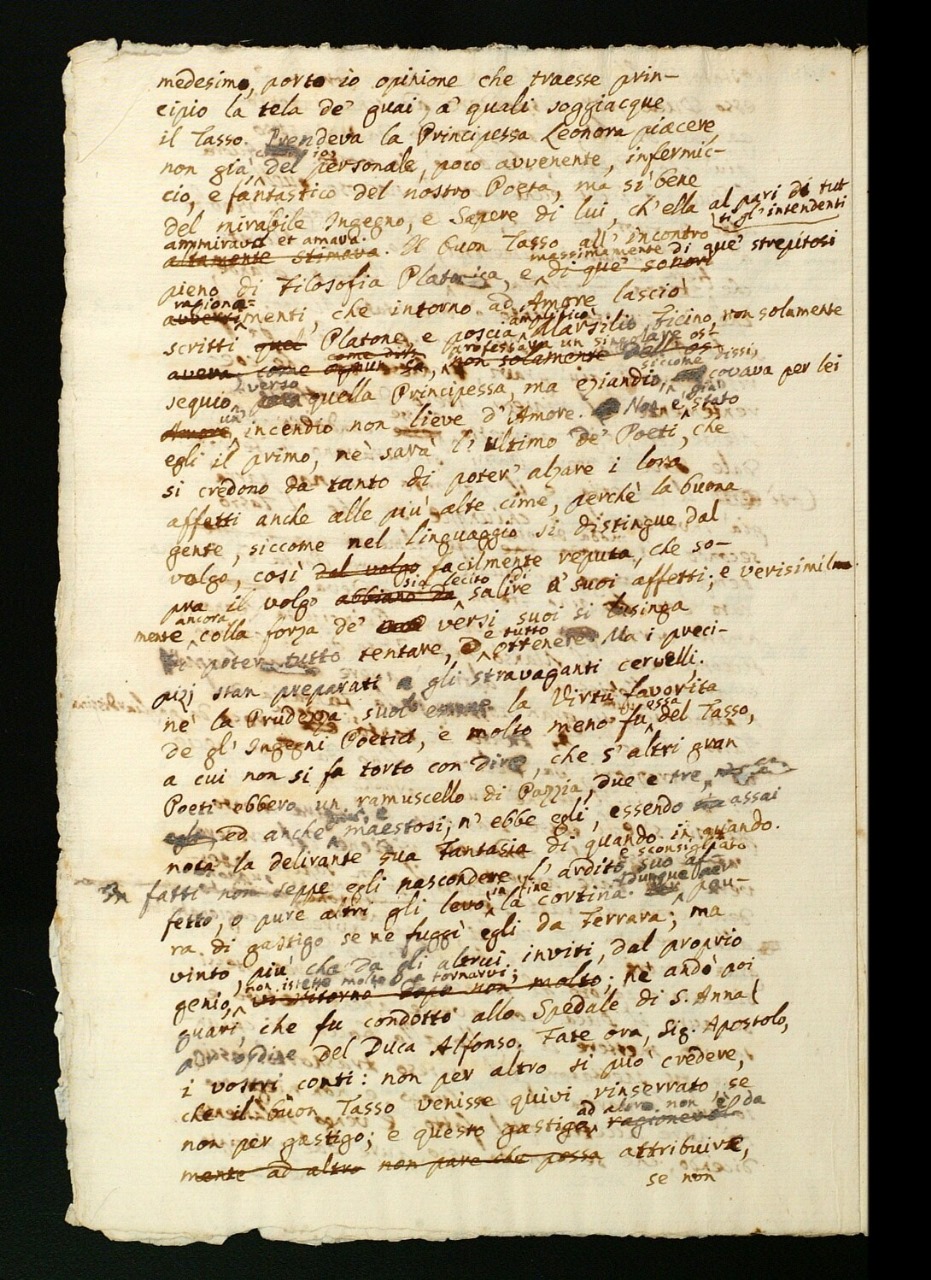 medesimo, porto io opinione che traesse prin-
cipio la tela de' guai, a' quali soggiacque
il Tasso. Prendeva la Principessa Leonora piacere,
non già del personale, poco avvenente, infermic-
cio, e fantastico del nostro Poeta, ma sì bene
del mirabile Ingegno, e Sapere di lui, ch'ella al pari di tut
ti gl'intendenti
ammirava et amava.
altamente stimava. Il buon Tasso all'incontro
massimamente di que' strepitosi
pieno di Filosofia Platonica, e di que' sonori
ragiona=
menti, che intorno ad Amore lasciò
amplificò
scritti quel Platone e poscia Marsilio Ficino, non solamente
professava un singolare os-
avera, come ognun sa, non solamente dell' os-
siccome dissi,
sequio verso quella Principessa, ma eziandio covava per lei
un
Amore incendio non lieve d'Amore. Non è già stato
egli il primo, nè sarà l'ultimo de' Poeti, che
si credono da tanto di poter' alzare i loro
affetti anche alle più alte cime, perchè la buona
gente, siccome nel linguaggio si distingue dal
volgo, così dal volgo facilmente reputa, che so-
sia lecito di
pra il volgo abbiano da salire a' suoi affetti; e verisimilm
ancora
mente colla forza de' versi suoi si lusinga
e tutto
poter tutto tentare, ottenere. Ma i preci-
pizj stan preparati a gli stravaganti cervelli.
nè la Prudenza suol essere la Virtù favorita
essa
de gl'Ingegni Poetici, e molto meno fu del Tasso,
a cui non si fa torto con dire, che s'altri gran
Poeti ebbero un ramuscello di Pazzia, due e tre,
egli, ed anche maestosi, n'ebbe egli, essendo assai
nota la delirante sua Fantasia di quando in quando.
e sconsigliato
In fatti non seppe egli nascondere l'ardito suo af-
in fine Dunque per
fetto, o pure altri gli levò la cortina. pau-
ra di gastigo se ne fuggì egli da Ferrara; ma
vinto più che da gli altrui inviti, dal proprio
non istette molto a tornarvi;
genio, vi ritornò dopo non molto; nè andò poi
guari, che fu condotto allo Spedale di S. Anna
per ordine del Duca Alfonso. Fate ora, Sig. Apostolo,
i vostri conti: non per altro si può credere,
che il buon Tasso venisse quivi rinserrato, se
ad altro non è da
non per gastigo; e questo gastigo ragionevol-
mente ad altro non pare che possa attribuire,
se non